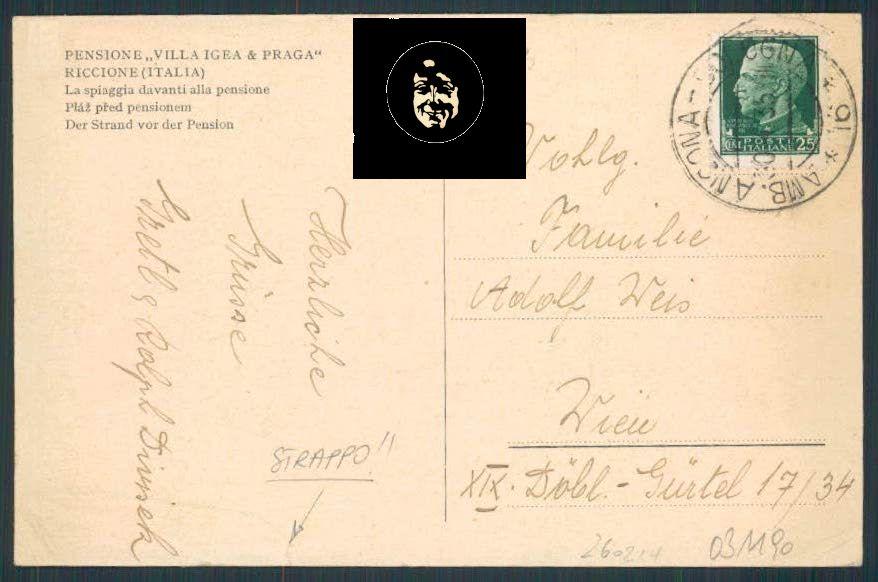 PENSIONE „VILLA IGEA & PRAGA“
RICCIONE (ITALIA)
La spiaggia davanti alla pensione
Pláž před pensionem
Der Strand vor der Pension
Herzliche
Grüsse
Gretl & Rolph
STRAPPO!!
POSTE
ITALIANE 25
AMB. ANCONA -
Wohlg.
Familie
Adolf Weis
Wien
XIX. Döbl.-Gürtel 17/34
031190